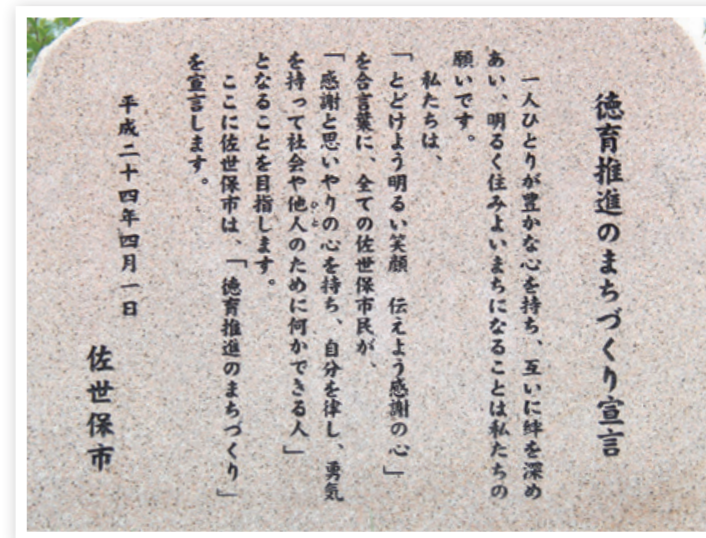 徳育推進のまちづくり宣言
一人ひとりが豊かな心を持ち、互いに絆を深め
あい、明るく住みよいまちになることは私たちの
願いです。
私たちは、
「とどけよう明るい笑顔　伝えよう感謝の心」
を合言葉に、全ての佐世保市民が、
「感謝と思いやりの心を持ち、自分を律し、勇気
を持って社会や他人のために何かできる人」
ひと
となることを目指します。
ここに佐世保市は、「徳育推進のまちづくり」
を宣言します。
平成二十四年四月一日
佐世保市